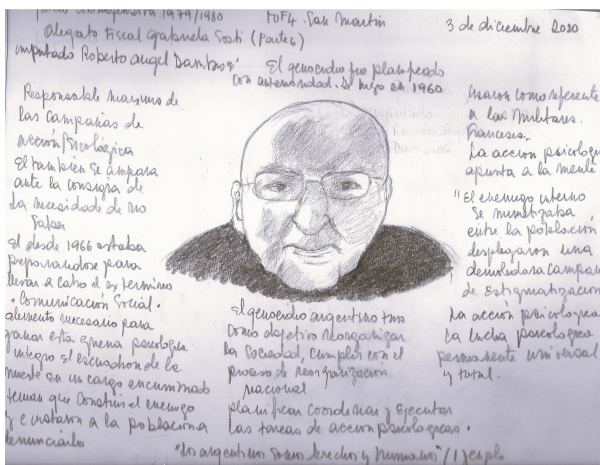 Juicio Contraofensiva 1979/1980 TOF4. San Martín 3 de diciembre 2020
Alegato Fiscal Gabriela Sosti (Parte 6)
imputado Roberto Angel Dambrosi
El genocidio fue planificado
con anterioridad. Se hizo en 1960
Responsable maximo de
las campañas de
acción psicológica
El también se ampara
ante la consigna de
la necesidade de no
saber
El desde 1966 estaba
preparandose para
llevar a cabo el exterminio
. Comunicación Social .
alimento necesario para
ganar esta guerra psicologica
integro el escuadron de la
muerte en un cargo encumbrado
tenian que construir el enemigo
e instaron a la poblaciona
denunciarlo
El genocidio argentino tuvo
como objetivo reorganizar
la sociedad, cumplir con el
proceso de reorganización
nacional
planificar coordinar y ejecutar
las tareas de acción psicologicas.
Usaron como referente
a los militares
franceses.
La acción psicologica
apunta a la mente
"El enemigo interno
se mimetizaba
entre la población
desplegaron una
demoledora campaña
de estigmatizacion
La acción psicologica
La lucha psicologica
permanente universal
y total.
"Los argentinos somos derechos y humanos" / 1 ejemplo